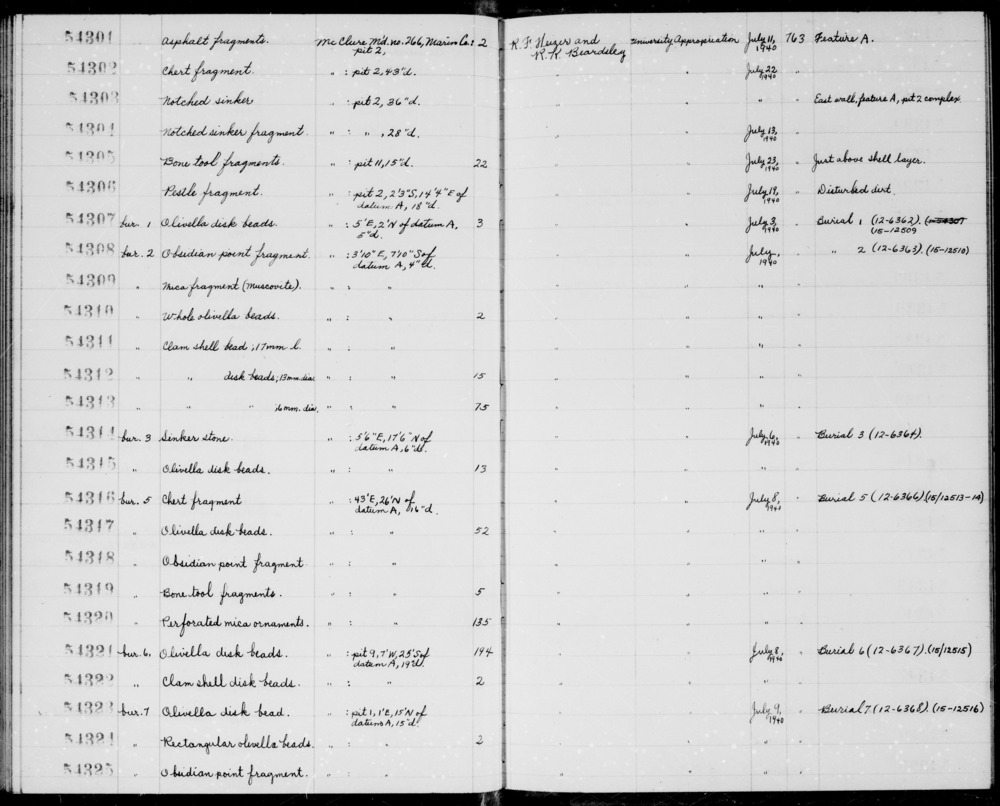 54301 Asphalt fragments. McClure Md. no. 266, Marin Co.: 2 R. F. Heizer and University Appropriation July 11, 763 Feature A.
pit 2, R. K. Beardsley 1940
54302 Chert fragment. " : pit 2, 43"d. " " July 22 "
1940
54303 Notched sinker " : pit 2, 36"d. " " " " East wall, feature A, pit 2 complex.
54304 Notched sinker fragment. " : " , 28"d. " " July 13, "
1940
54305 Bone tool fragments. " : pit 11, 15"d. 22 " " July 23, " Just above shell layer.
1940
54306 Pestle fragment. " : pit 2, 2'3"S, 14'4"E of " " July 19, " Disturbed dirt.
datum A, 18"d. 1940
54307 bur. 1 Olivella disk beads. " : 5'E, 2'N of datum A, 3 " " July 3, " Burial 1 (12-6362).
5"d. 1940 (15-12509
54308 bur. 2 Obsidian point fragment. " : 3'10"E, 7'10"S of " " July , " " 2 (12-6363). (15-12510)
datum A, 4"d. 1940
54309 " Mica fragment (muscovite). " : " " " " "
54310 " Whole olivella beads. " : " 2 " " " "
54311 " Clam shell bead; 17mm l. " : " " " " "
54312 " " disk beads; 13mm. dia. " : " 15 " " " "
54313 " " " ;6mm. dia. " : " 75 " " " "
54314 bur. 3 Sinker stone. " : 5'6"E, 17'6"N of " " July 6, " Burial 3 (12-6364).
datum A, 6"d. 1940
54315 " Olivella disk beads. " : " 13 " " " "
54316 bur. 5 Chert fragment " : 43'E, 26'N of " " July 8, " Burial 5 (12-6366) (15/12513-14)
datum A, 16"d. 1940
54317 " Olivella disk beads. " : " 52 " " " "
54318 " Obsidian point fragment " : " " " " "
54319 " Bone tool fragments. " : " 5 " " " "
54320 " Perforated mica ornaments. " : " 135 " " " "
54321 bur. 6. Olivella disk beads. " : pit 9, 7'W, 25'S of 194 " " July 8, " Burial 6 (12-6367). (15/12515)
datum A, 19"d. 1940
54322 " Clam shell disk beads. " : " 2 " " " "
54323 bur. 7 Olivella disk bead. " : pit 1, 1'E, 15'N of " " July 9, " Burial 7. (12-6368). (15-12516)
datum A, 15"d. 1940
54324 " Rectangular olivella beads. " : " 2 " " " "
54325 " Obsidian point fragment. " : " " " " "